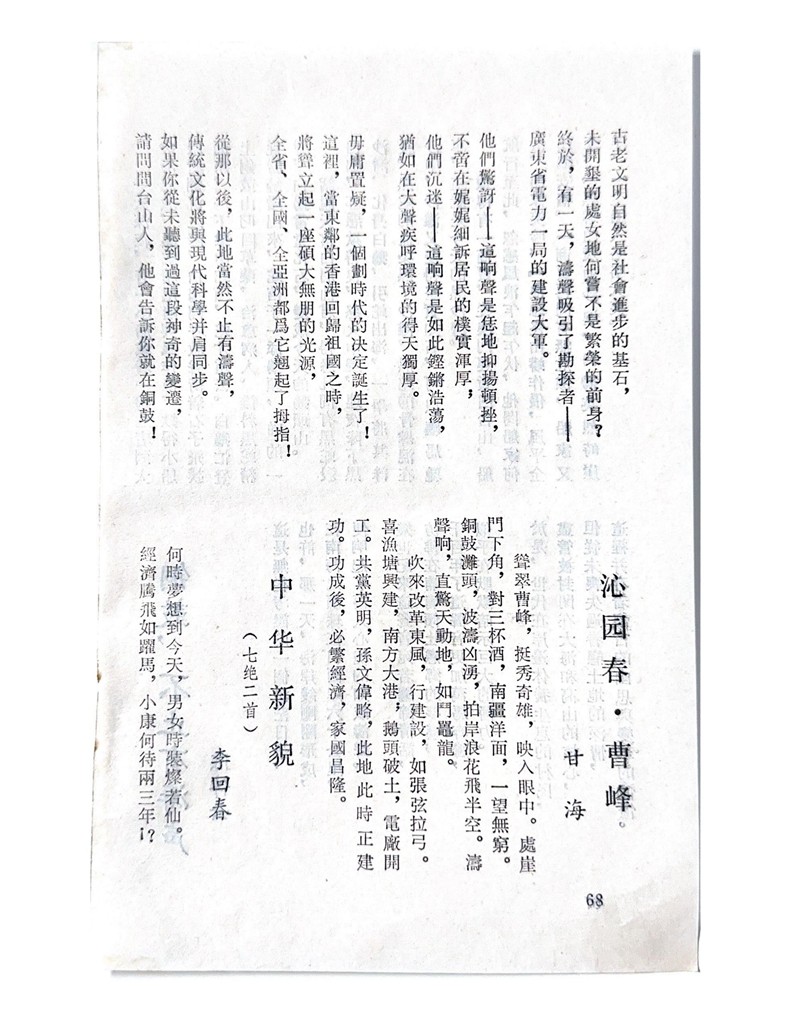 古老文明自然是社會進步的基石，
未開墾的處女地何嘗不是繁榮的前身？
終於，有一天，濤聲吸引了勘探者——
廣東省電力一局的建設大軍。
他們驚訝——這响聲是恁地抑揚頓挫，
不啻在娓娓細訴居民的樸實渾厚，
他們沉迷——這响聲是如此鏗鏘浩蕩，
猶如在大聲疾呼環境的得天獨厚。
毋庸置疑，一個劃時代的決定誕生了！
這裡，當東鄰的香港回歸祖國之時，
將聳立起一座碩大無朋的光源，
全省、全國、全亞洲都爲它翹起了拇指！
從那以後，此地當然不止有濤聲，
傳統文化將與現代科學并肩同步。
如果你從未聽到過這段神奇的變遷，
請問問台山人，他會告訴你就在銅鼓！
沁园春·曹峰。
甘海
聳翠曹峰，挺秀奇雄，映入眼中。處崖
門下角，對三杯酒，南疆洋面，一望無窮。
銅鼓灘頭，波濤凶湧，拍岸浪花飛半空。濤
聲响，直驚天動地，如鬥鼉龍。
吹來改革東風，行建設，如張弦拉弓。
喜漁塘興建，南方大港；鵝頭破土，電廠開
工。共黨英明，孫文偉略，此地此時正建
功。功成後，必繁經濟，家國昌隆。
中华新貌
（七绝二首）
李回春
何時夢想到今天，男女時裝燦若仙。
經濟騰飛如躍馬，小康何待兩三年！？
68